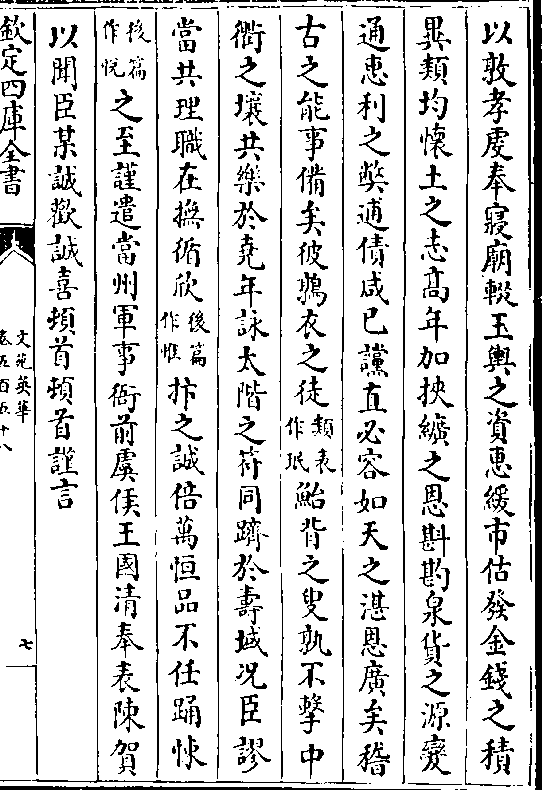 以敦孝虔奉寢廟輟玉輿之資惠緩市估發金錢之積
異類均懷土之志高年加挾纊之恩斟酌泉貨之源變
通惠利之弊逋債咸已讜直必容如天之湛恩廣矣稽
古之能事備矣彼鶉衣之徒類表作氓鮐背之叟孰不擊中
衢之壤共樂於堯年詠太階之符同躋於壽域况臣謬
當共理職在撫循欣後篇作惟抃之誠倍萬恒品不任踊悚
後篇作悅之至謹遣當州軍事衙前虞侯王國清奉表陳賀
以聞臣某誠歡誠喜頓首頓首謹言
欽定四庫全書
文苑英華
卷五百五十八
七